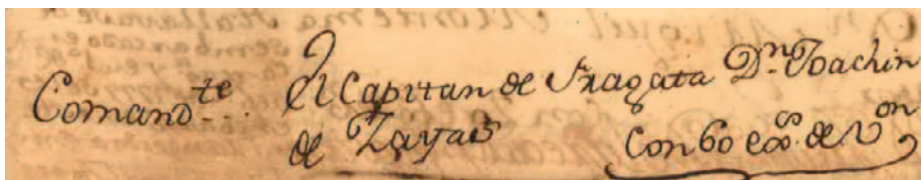 Comand.te El Capitan de Fragata D.n Joachin
de Zayas Con 60 es.s de v.on